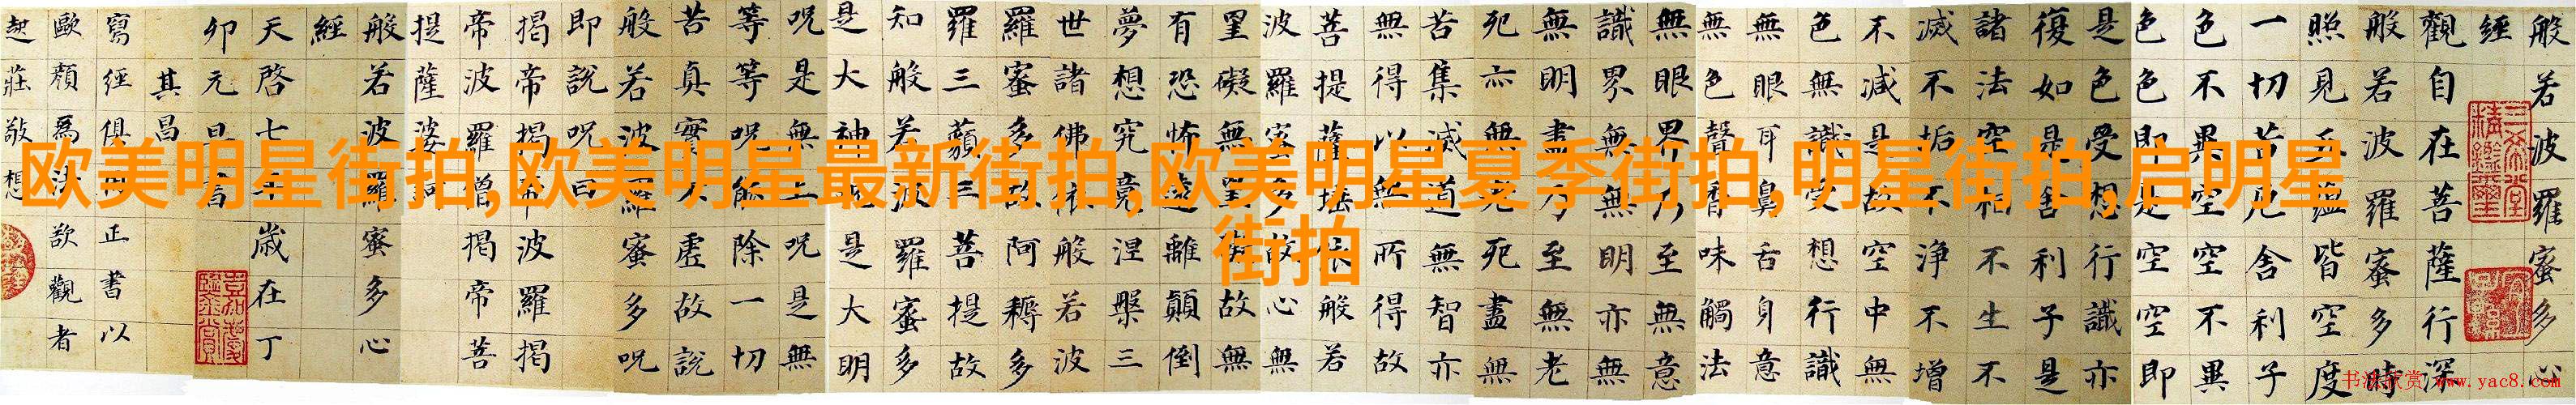 般若波羅蜜多心
經
觀自在菩薩行深
般若波羅蜜多時
照見五蘊皆空度
一切苦厄舍利子
色不異空空不異
色色即是空空即
是色受想行識亦
復如是舍利子是
諸法空相不生不
滅不垢不淨不增
不減是故空中無
色無識受想行識
無眼耳鼻舌身意
無色聲香味觸法
無眼界乃至無意
識界無無明亦無
無明盡乃至無老
死亦無老死盡無
苦集滅道無智亦
無得以無所得故
菩提薩埵依般若
波羅蜜多故心無
罣礙無罣礙故無
有恐怖遠離顛倒
夢想究竟涅槃三
世諸佛依般若波
羅蜜多故阿耨多
羅三藐三菩提故
知般若波羅蜜多
是大神咒是大明
呪是無上呪是無
等等呪能除一切
苦真實不虛故說
般若波羅蜜多呪
即說呪曰
揭帝揭帝波羅揭
帝波羅僧揭帝菩
提薩婆訶
般若波羅蜜多心
經
天啓七年歲在丁
卯元旦書
其昌
寫經俱正書以
歐顏為法欲觀者
起莊敬想
欧美明星街拍,欧美明星最新街拍,欧美明星夏季街拍,明星街拍,启明星
街拍
书法欣赏 www.yac8.com